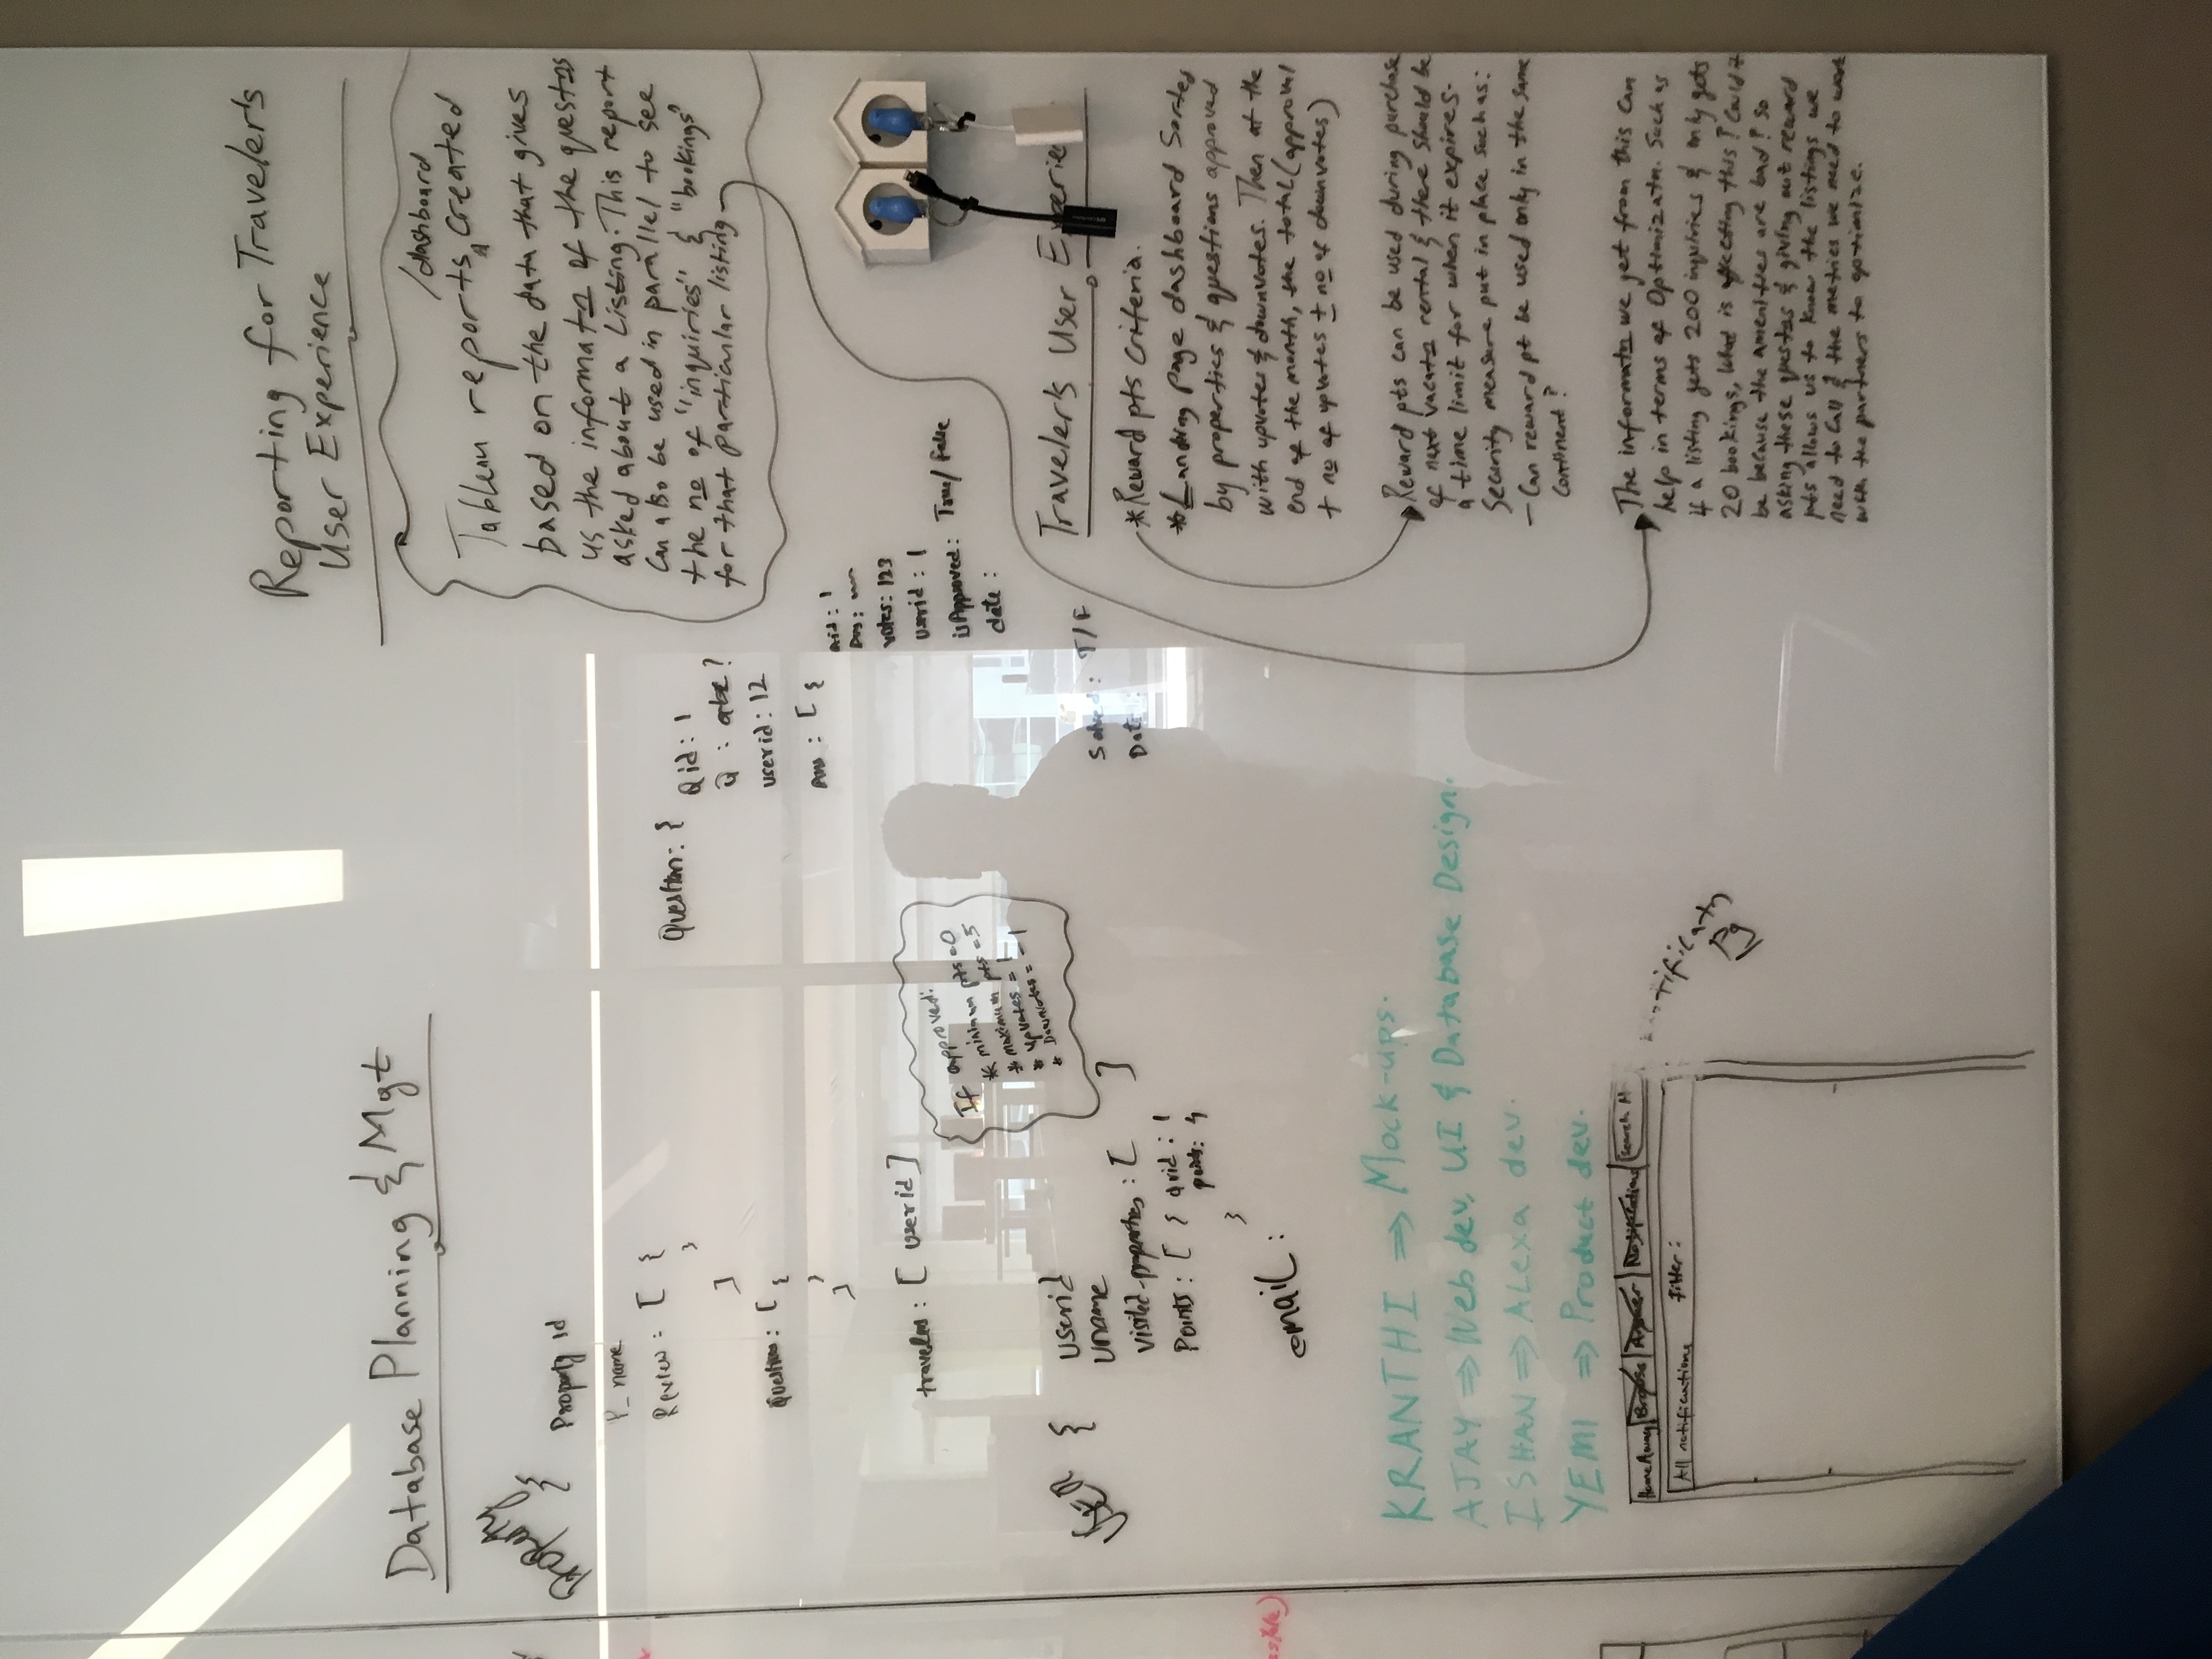 Database Planning & Mgt
Property {
Property id
P_name
Review : [ {
}
]
Questions : [ {
}
]
travelers : [ userid ]
{
userid
uname
visited-properties : [ ]
Points : [ { qid : 1
points : 4
}
email :
If approved:
* minimum pts = 0
* maximum pts = 5
* upvotes = 1
* Downvotes = -1
Question : {
Qid : 1
Q : abc?
userid : 12
Ans : [ {
Aid : 1
Ans :
votes : 123
userid : 1
isApproved : True/False
date :
Solved : T/F
Date :
KRANTHI ⇒ Mock-ups.
AJAY ⇒ Web dev, UI & Database Design.
ISHAN ⇒ ALexa dev.
YEMI ⇒ Product dev.
HomeAway Browse Answer Search
All notifications filter :
Pg
Reporting for Travelers
User Experience
/dashboard
Tableau reports ^ Created
based on the data that gives
us the informatn of the questns
asked about a Listing. This report
Can also be used in parallel to see
the no of "inquiries" & "bookings"
for that particular listing
Travelers User Experie
* Reward pts criteria.
* Landing page dashboard Sorted
by properties & questions approved
with upvotes & downvotes. Then at the
end of the month, the total (approval
+ no of upvotes ± no of downvotes)
Reward pts can be used during purchase
of next vacatn rental & there should be
a time limit for when it expires.
Security measure put in place such as:
- Can reward pt be used only in the same
Continent?
The informatn we get from this can
help in terms of Optimizatn. Such as
if a listing gets 200 inquiries & only gets
20 bookings, what is affecting this? Could it
be because the amenities are bad? So
asking these questns & giving out reward
pts allows us to know the listings we
need to Call & the metrics we need to work
with the partners to optimize.